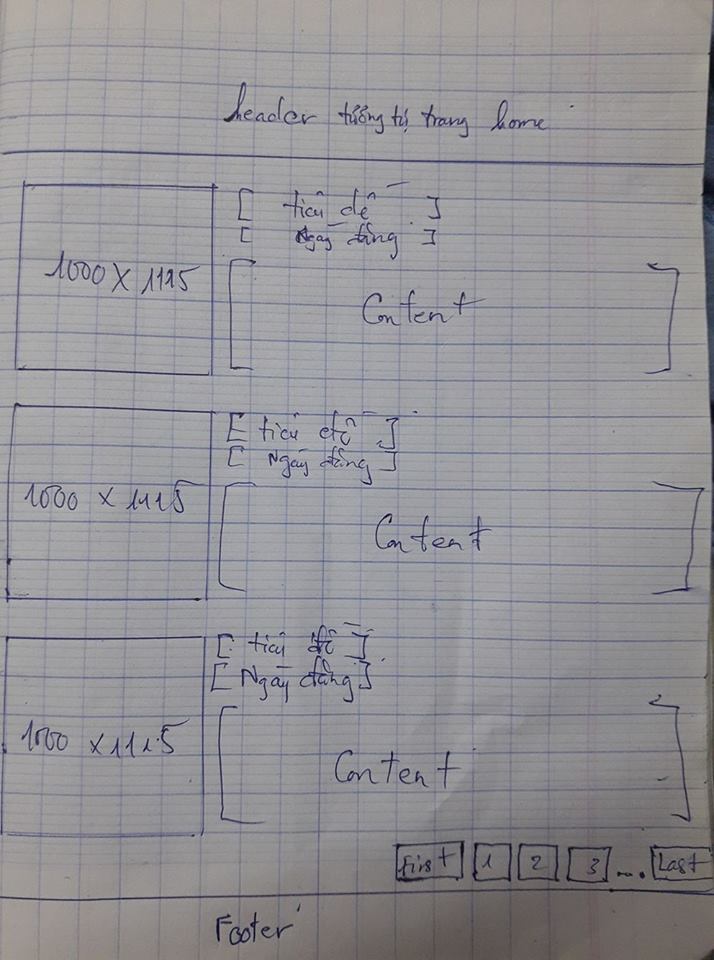 header tương tự trang home
[ tiêu đề ]
[ Ngày đăng ]
1000 X 1125
Content
[ tiêu đề ]
[ Ngày đăng ]
1000 X 1125
Content
[ tiêu đề ]
[ Ngày đăng ]
1000 x 1125
Content
First 1 2 3 .... Last
Footer